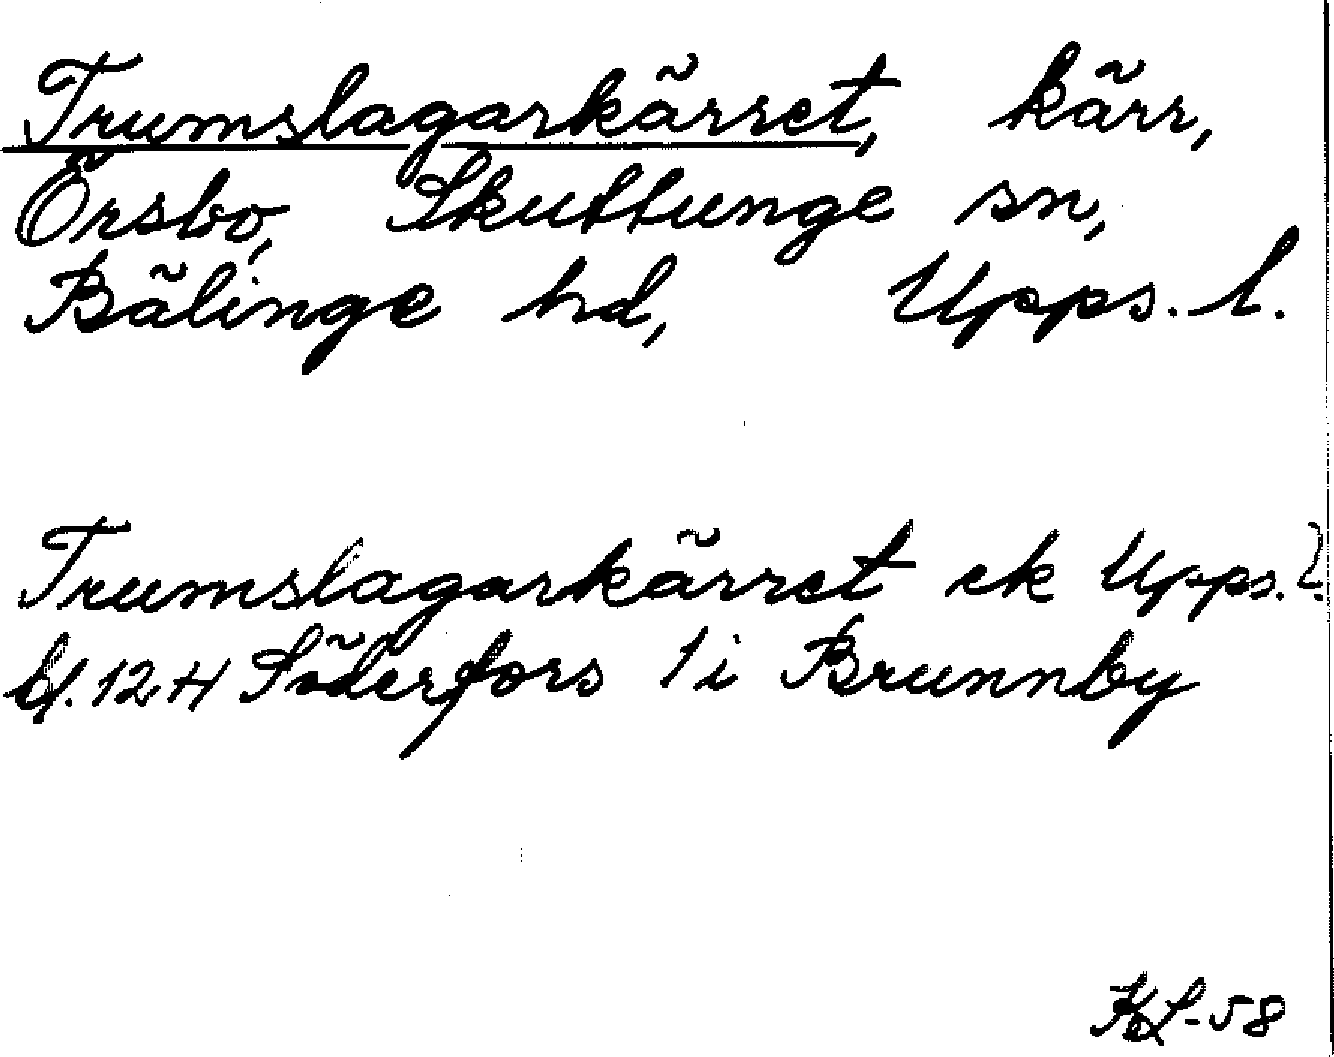 Trumslagarkärret, kärr,
Örsbo, Skuttunge sn,
Bälinge hd, Upps. l.
Trumslagarkärret ek Upps. l.
bl. 12 H Söderfors 1 i Brunnby
KL-58